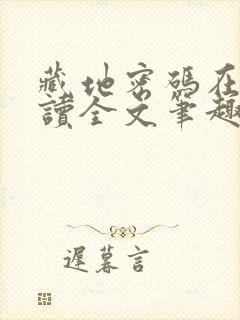 藏地密碼在
讀全文筆趣
遲暮言